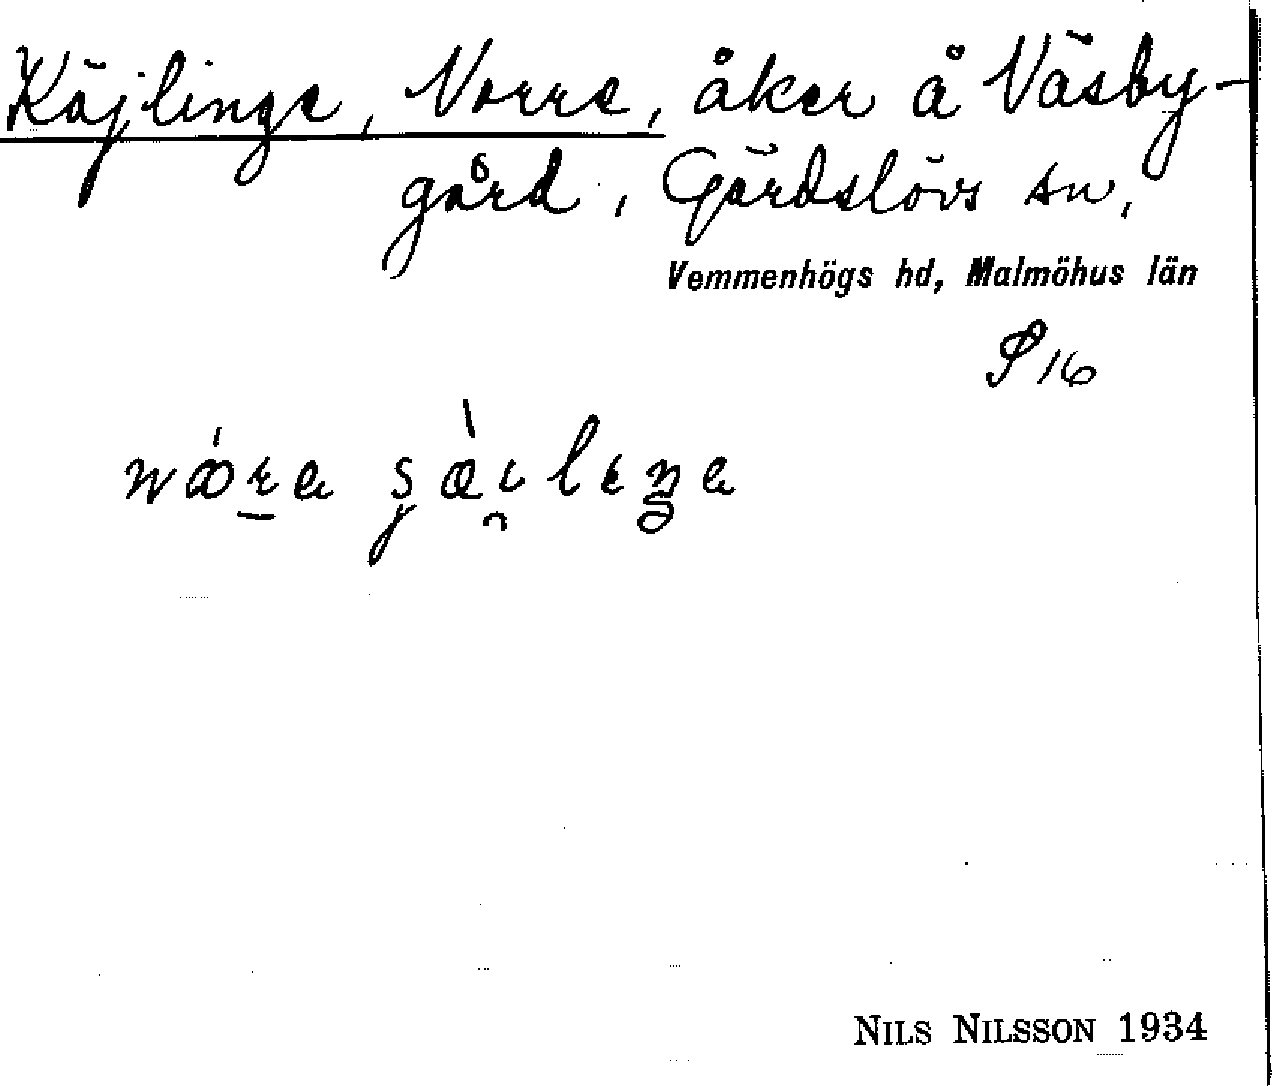 Käjlinge, Norra, åker å Väsby-
gård, Gärdslövs sn,
Vemmenhögs hd, Malmöhus län
S 16
NILS NILSSON 1934